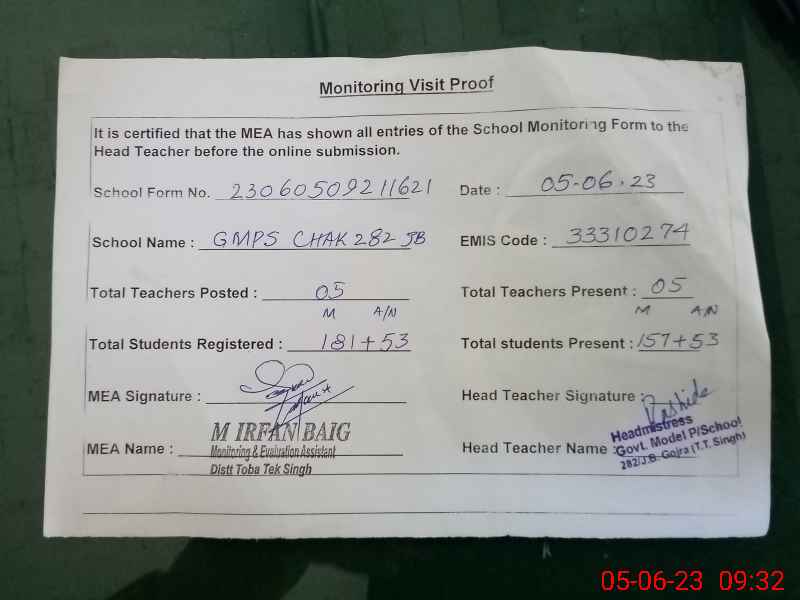 Monitoring Visit Proof
It is certified that the MEA has shown all entries of the School Monitoring Form to the
Head Teacher before the online submission.
School Form No. 23060509211621 Date : 05-06.23
School Name : GMPS CHAK 282 JB EMIS Code : 33310274
Total Teachers Posted : 05 Total Teachers Present : 05
M A/N M A/N
Total Students Registered : 181+53 Total students Present : 157+53
MEA Signature : Head Teacher Signature : Rashida
MEA Name : M IRFAN BAIG Head Teacher Name :
Monitoring & Evaluation Assistant
Distt Toba Tek Singh
Headmistress
Govt. Model P/School
282/J.B. Gojra (T.T. Singh)
05-06-23 09:32